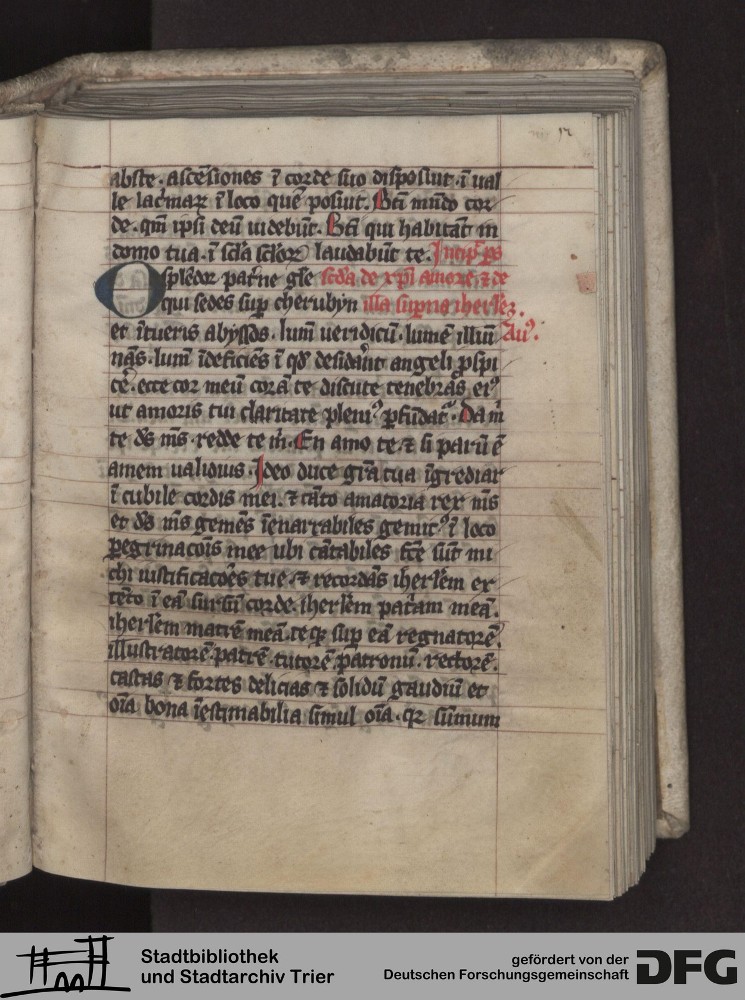 abste · ascēsiones ī corde suo disposuit · ī ual
le lac̄maꝝ ī loco quē posuit. Bt̄i mūdo cor
de · qm̄ ipsi deū uidebūt. Bt̄i qui habitāt in
domo tua · ī scl̄a scl̄oꝝ laudabūt te. Incip̄ ps
O splēdor pat̄ne gl̄e scd̄a de xp̄i amore ⁊ de
qui sedes sup̄ cherubyn illa sup̄na iherl̄ez.
et ītueris abyssos · lum̄ ueridicū · lumē illūi Au᷒.
nās · lum̄ īdeficiēs ī qd̄ desidāūt angeli ꝓspi
cē · ecce cor meū corā te discute tenebrās ei᷒
ut amoris tui claritate pleni᷒ ꝑfūdat᷑ · Da m̄
te ds̄ m̄s · redde te m̄ · En amo te ⁊ si parū ē
amem ualidius · Ideo duce gr̄a tua īgrediar
ī cubile cordis mei · ⁊ cāto amatoria rex m̄s
et ds̄ m̄s gemēs īenarrabiles gemit᷒ ī loco
ꝑegrinacōis mee ubi cātabiles fc̄e sūt mi
chi iustificacōes tue · ⁊ recordās iherl̄em ex
tēto ī eā sursū corde · iherl̄em pat̄am meā ·
iherl̄em matrē meā · teqꝫ sup̄ eā regnatorē ·
illustratorē · patrē · tutorē · patronū · rectorē ·
castas ⁊ fortes delicias ⁊ solidū gaudiū et
oīa bona īestimabilia simul oīa · qꝛ sūmum
Stadtbibliothek
und Stadtarchiv Trier
gefördert von der
Deutschen Forschungsgemeinschaft
DFG